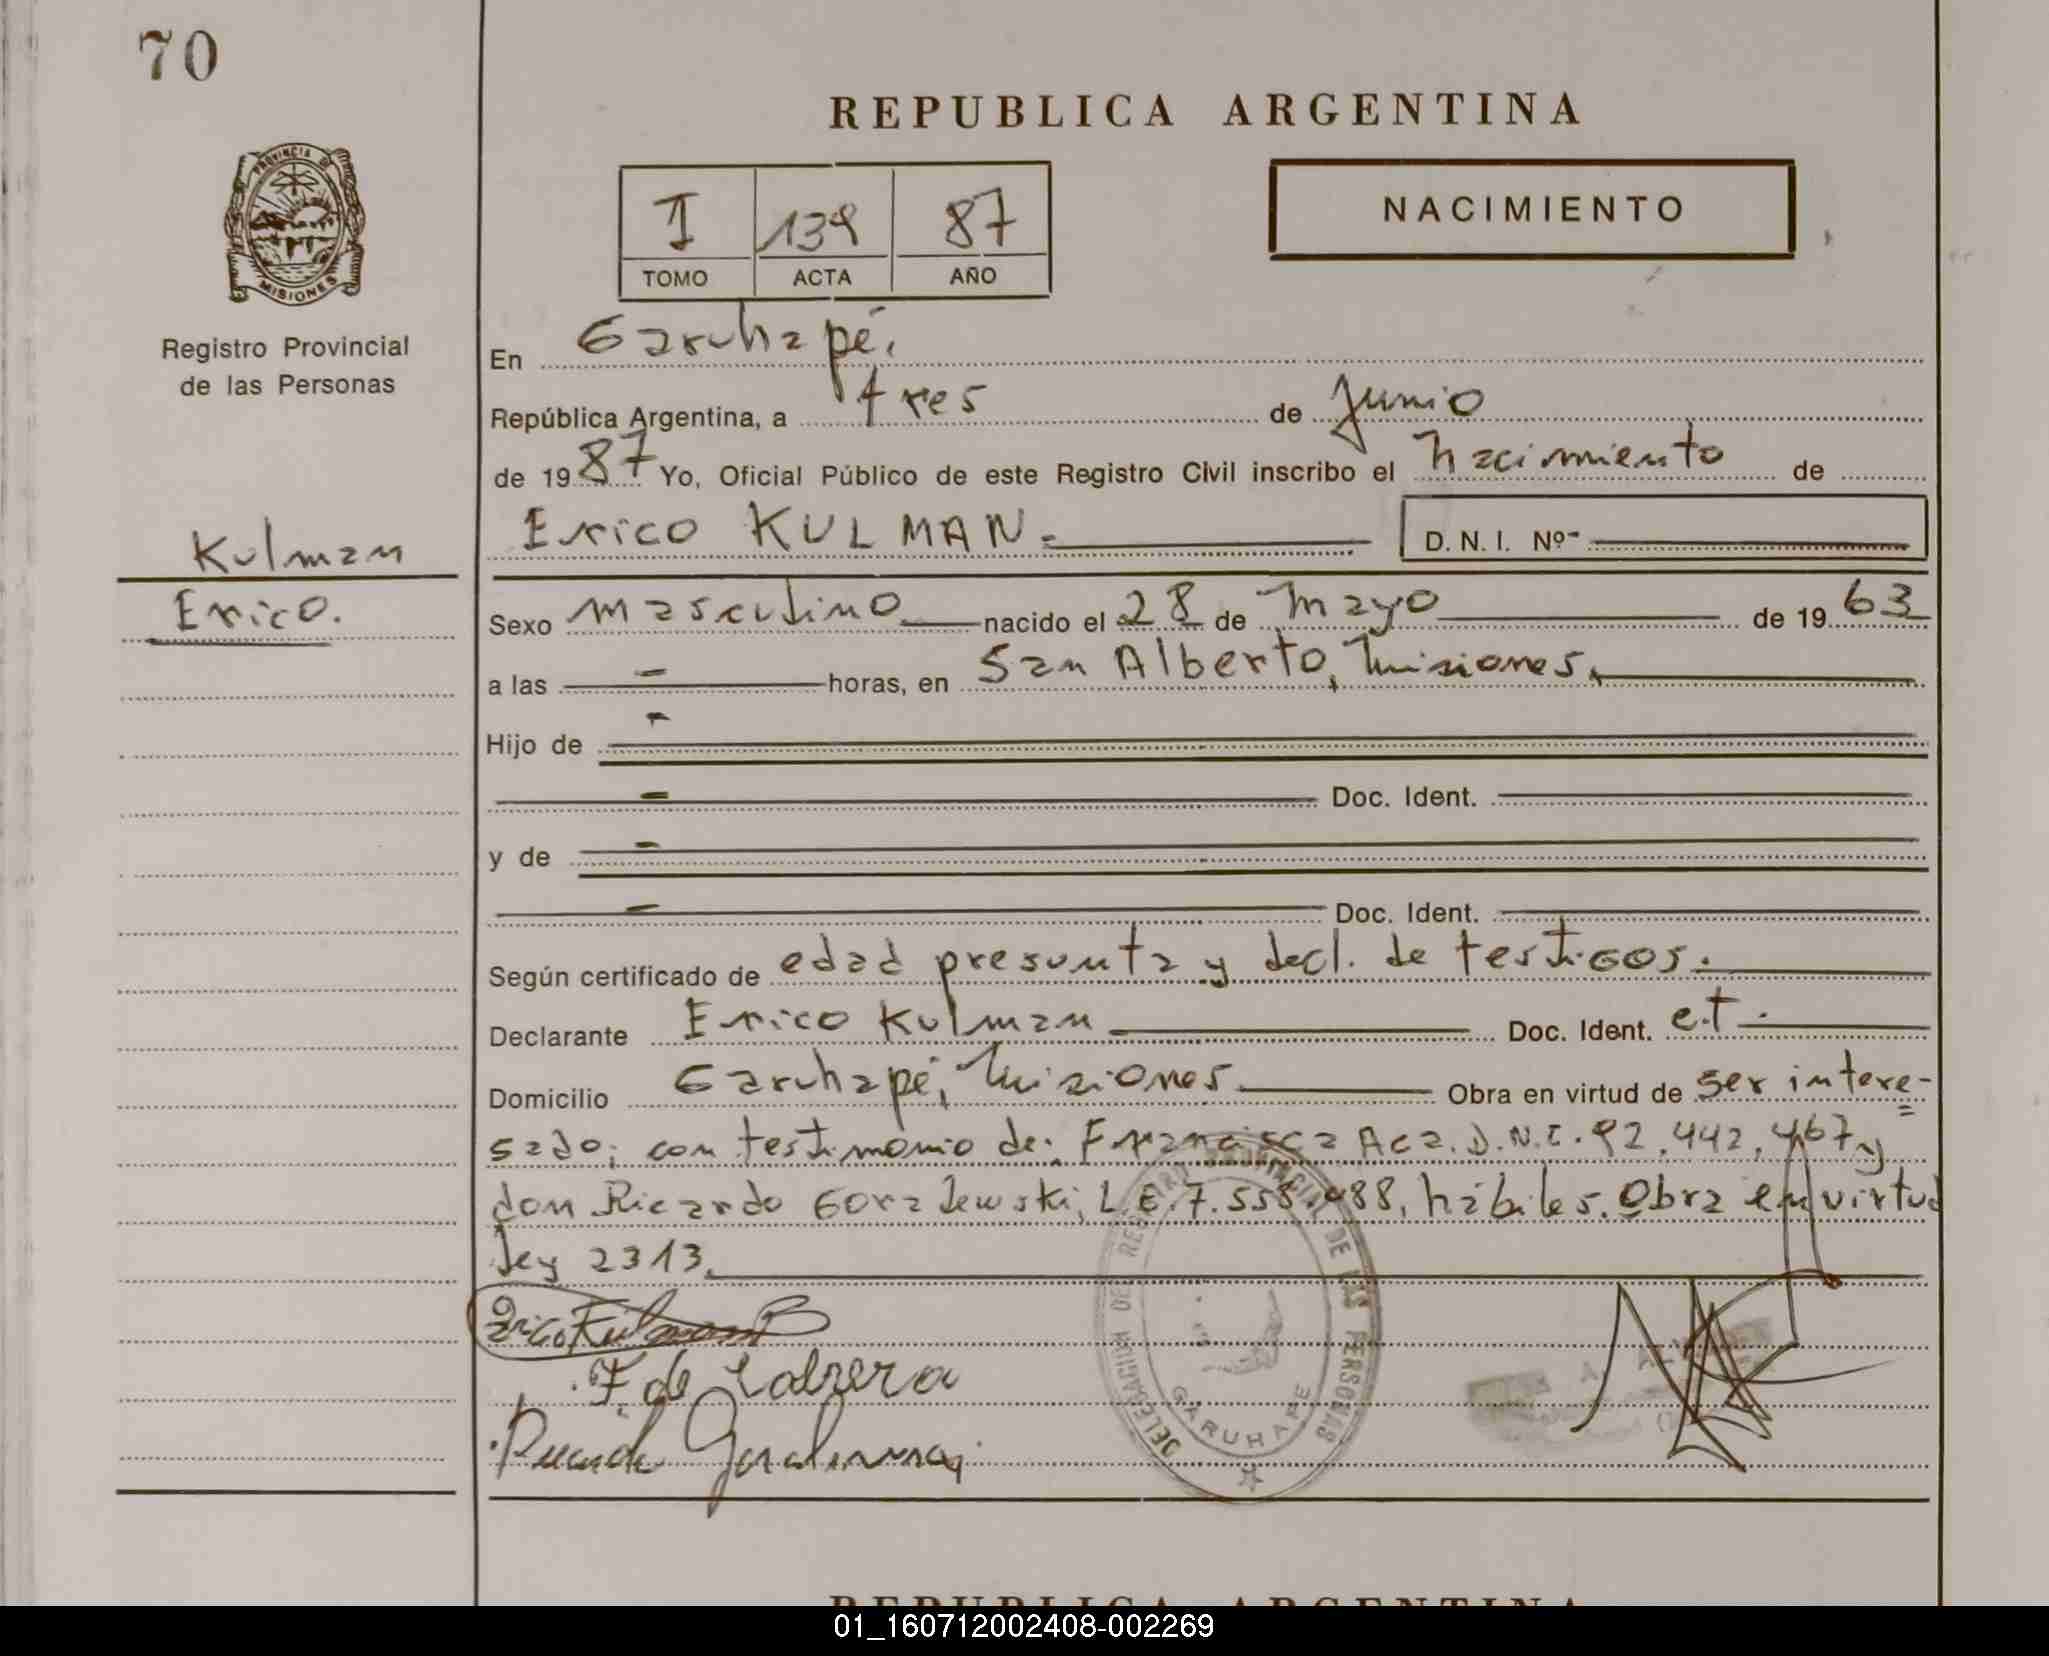 70
REPUBLICA ARGENTINA
PROVINCIA DE
MISIONES
I 139 87
TOMO ACTA AÑO
NACIMIENTO
Registro Provincial
de las Personas
En Garuhapé,
República Argentina, a tres de Junio
de 1987 Yo, Oficial Público de este Registro Civil inscribo el nacimiento de
Kulman
Erico KULMAN.- D. N. I. Nº
Erico.
Sexo masculino nacido el 28 de Mayo de 1963
a las horas, en San Alberto, Misiones.
Hijo de
Doc. Ident.
y de
Doc. Ident.
Según certificado de edad presunta y decl. de testigos.
Declarante Erico Kulman Doc. Ident. e.t.
Domicilio Garuhapé, Misiones Obra en virtud de ser intere-
sado; con testimonio de: Francisca Aca. D.N.I. 92.442.467 y
don Ricardo Goralewski, L.E. 7.558.988, hábiles. Obra en virtud
ley 2313.
Erico Kulman
F. de Cabrera
Ricardo
DELEGACION DEL REGISTRO PROVINCIAL DE LAS PERSONAS
GARUHAPE
REPUBLICA ARGENTINA
01_160712002408-002269